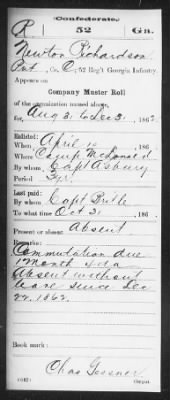 Confederate.
R 52 Ga.
Newton Richardson
Pvt, Co. C, 52 Reg't Georgia Infantry.
Appears on
Company Muster Roll
of the organization named above,
for Aug 31 to Dec 31, 1862.
Enlisted:
When April 10, 186
Where Camp McDonald
By whom Capt Asbury
Period 3 yr.
Last paid:
By whom Capt Brille
To what time Oct 31, 186
Present or absent Absent
Remarks:
Commutation due
1 Month 4 da
Absent without
leave since Dec
22, 1862.
Book mark:
Chas Gessner
(642) Copyist.